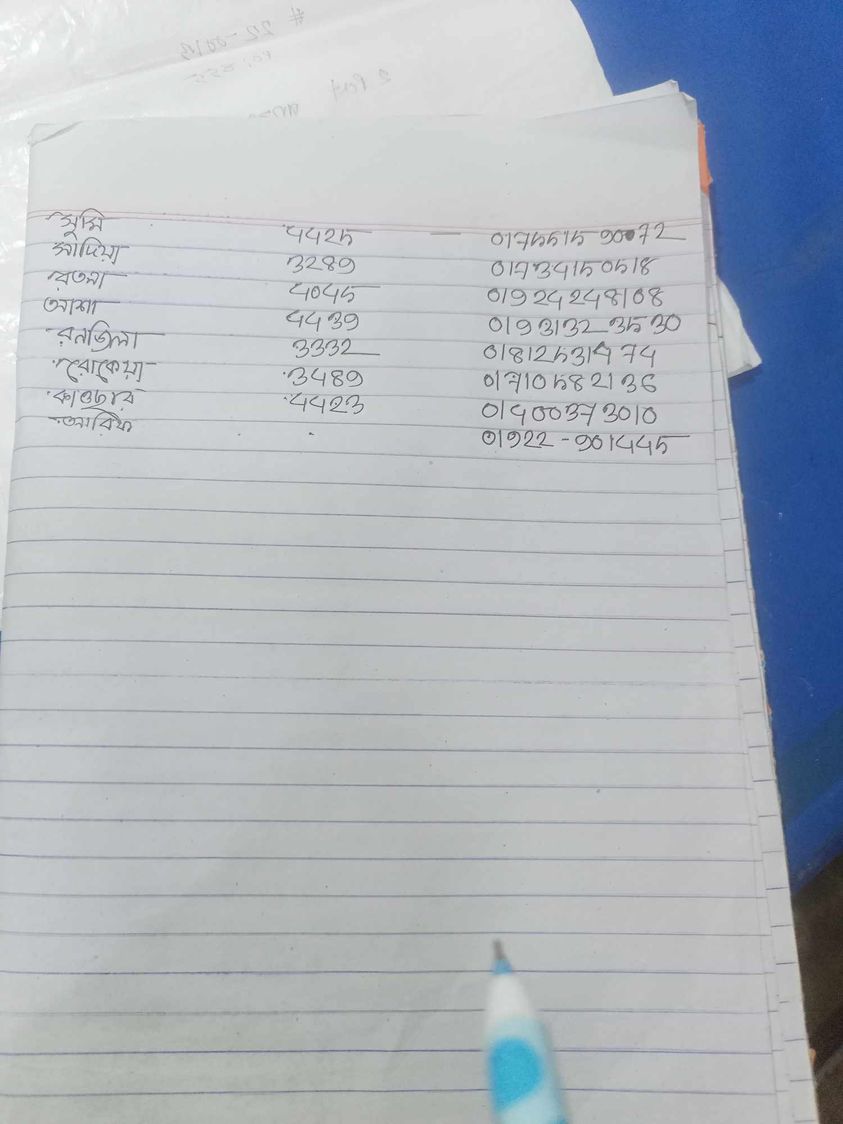 সুমি 4425 — 01755159072
সাদিয়া 3289 01734150518
রতনা 4045 01924248108
আশা 4439 01931323530
রনজিলা 3332 01812531974
রোকেয়া 3489 01710582136
কাওছার 4423 01400373010
আরিফ 01922-901445